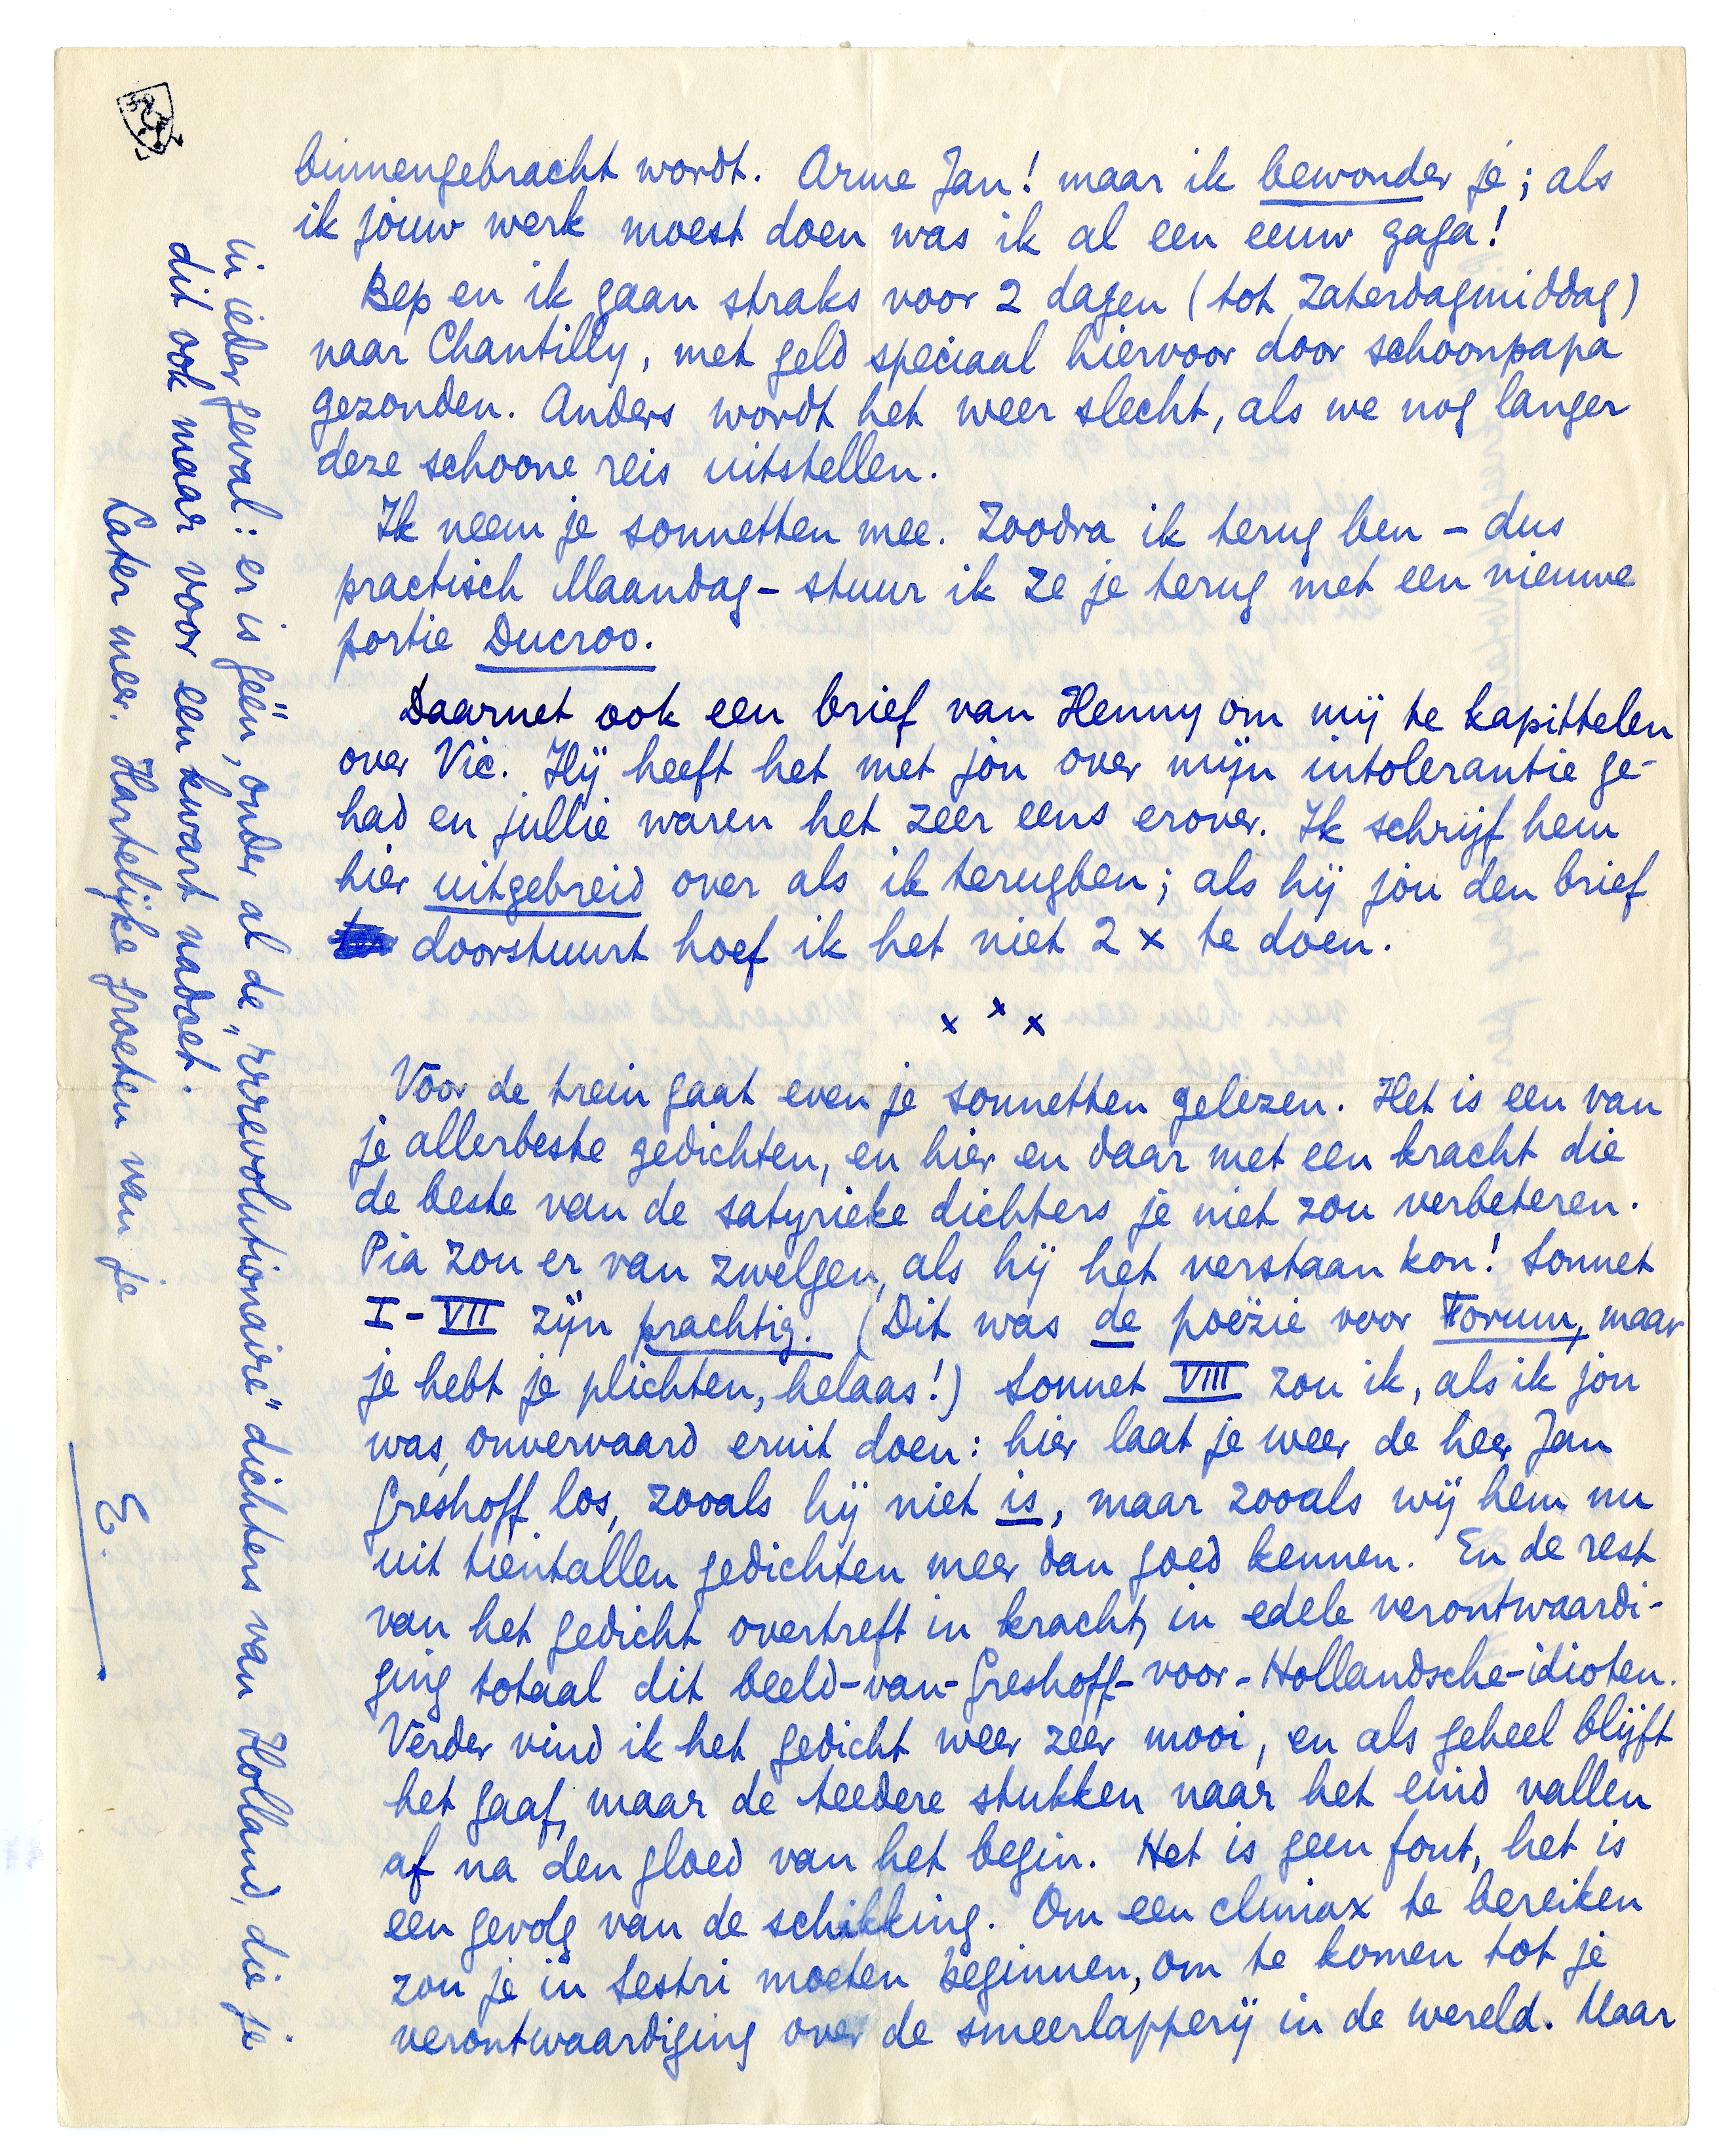 binnengebracht wordt. Arme Jan! maar ik bewonder je; als
ik jouw werk moest doen was ik al een eeuw gaga!
Bep en ik gaan straks voor 2 dagen (tot Zaterdagmiddag)
naar Chantilly, met geld speciaal hiervoor door schoonpapa
gezonden. Anders wordt het weer slecht, als we nog langer
deze schoone reis uitstellen.
Ik neem je sonnetten mee. Zoodra ik terug ben - dus
practisch Maandag - stuur ik ze je terug met een nieuwe
portie Ducroo.
Daarnet ook een brief van Henny om mij te kapittelen
over Vic. Hij heeft het met jou over mijn intolerantie ge-
had en jullie waren het zeer eens erover. Ik schrijf hem
hier uitgebreid over als ik terugben; als hij jou den brief
doorstuurt hoef ik het niet 2 x te doen.
x x x
Voor de trein gaat even je sonnetten gelezen. Het is een van
je allerbeste gedichten, en hier en daar met een kracht die
de beste van de satyrieke dichters je niet zou verbeteren.
Pia zou er van zwelgen, als hij het verstaan kon! Sonnet
I - VII zijn prachtig. (Dit was de poëzie voor Forum, maar
je hebt je plichten, helaas!) Sonnet VIII zou ik, als ik jou
was, onvervaard eruit doen: hier laat je weer de heer Jan
Greshoff los, zooals hij niet is, maar zooals wij hem nu
uit tientallen gedichten meer dan goed kennen. En de rest
van het gedicht overtreft in kracht, in edele verontwaardi-
ging totaal dit beeld-van-Greshoff-voor-Hollandsche-idioten.
Verder vind ik het gedicht weer zeer mooi, en als geheel blijft
het gaaf, maar de teedere stukken naar het eind vallen
af na den gloed van het begin. Het is geen fout, het is
een gevolg van de schikking. Om een climax te bereiken
zou je in Sestri moeten beginnen, om te komen tot je
verontwaardiging over de smeerlapperij in de wereld. Maar
in ieder geval: er is géén, onder al de „rrrevolutionaire" dichters van Holland, die je
dit ook maar voor een kwart nadoet.
Later meer. Hartelijke groeten van je
E.